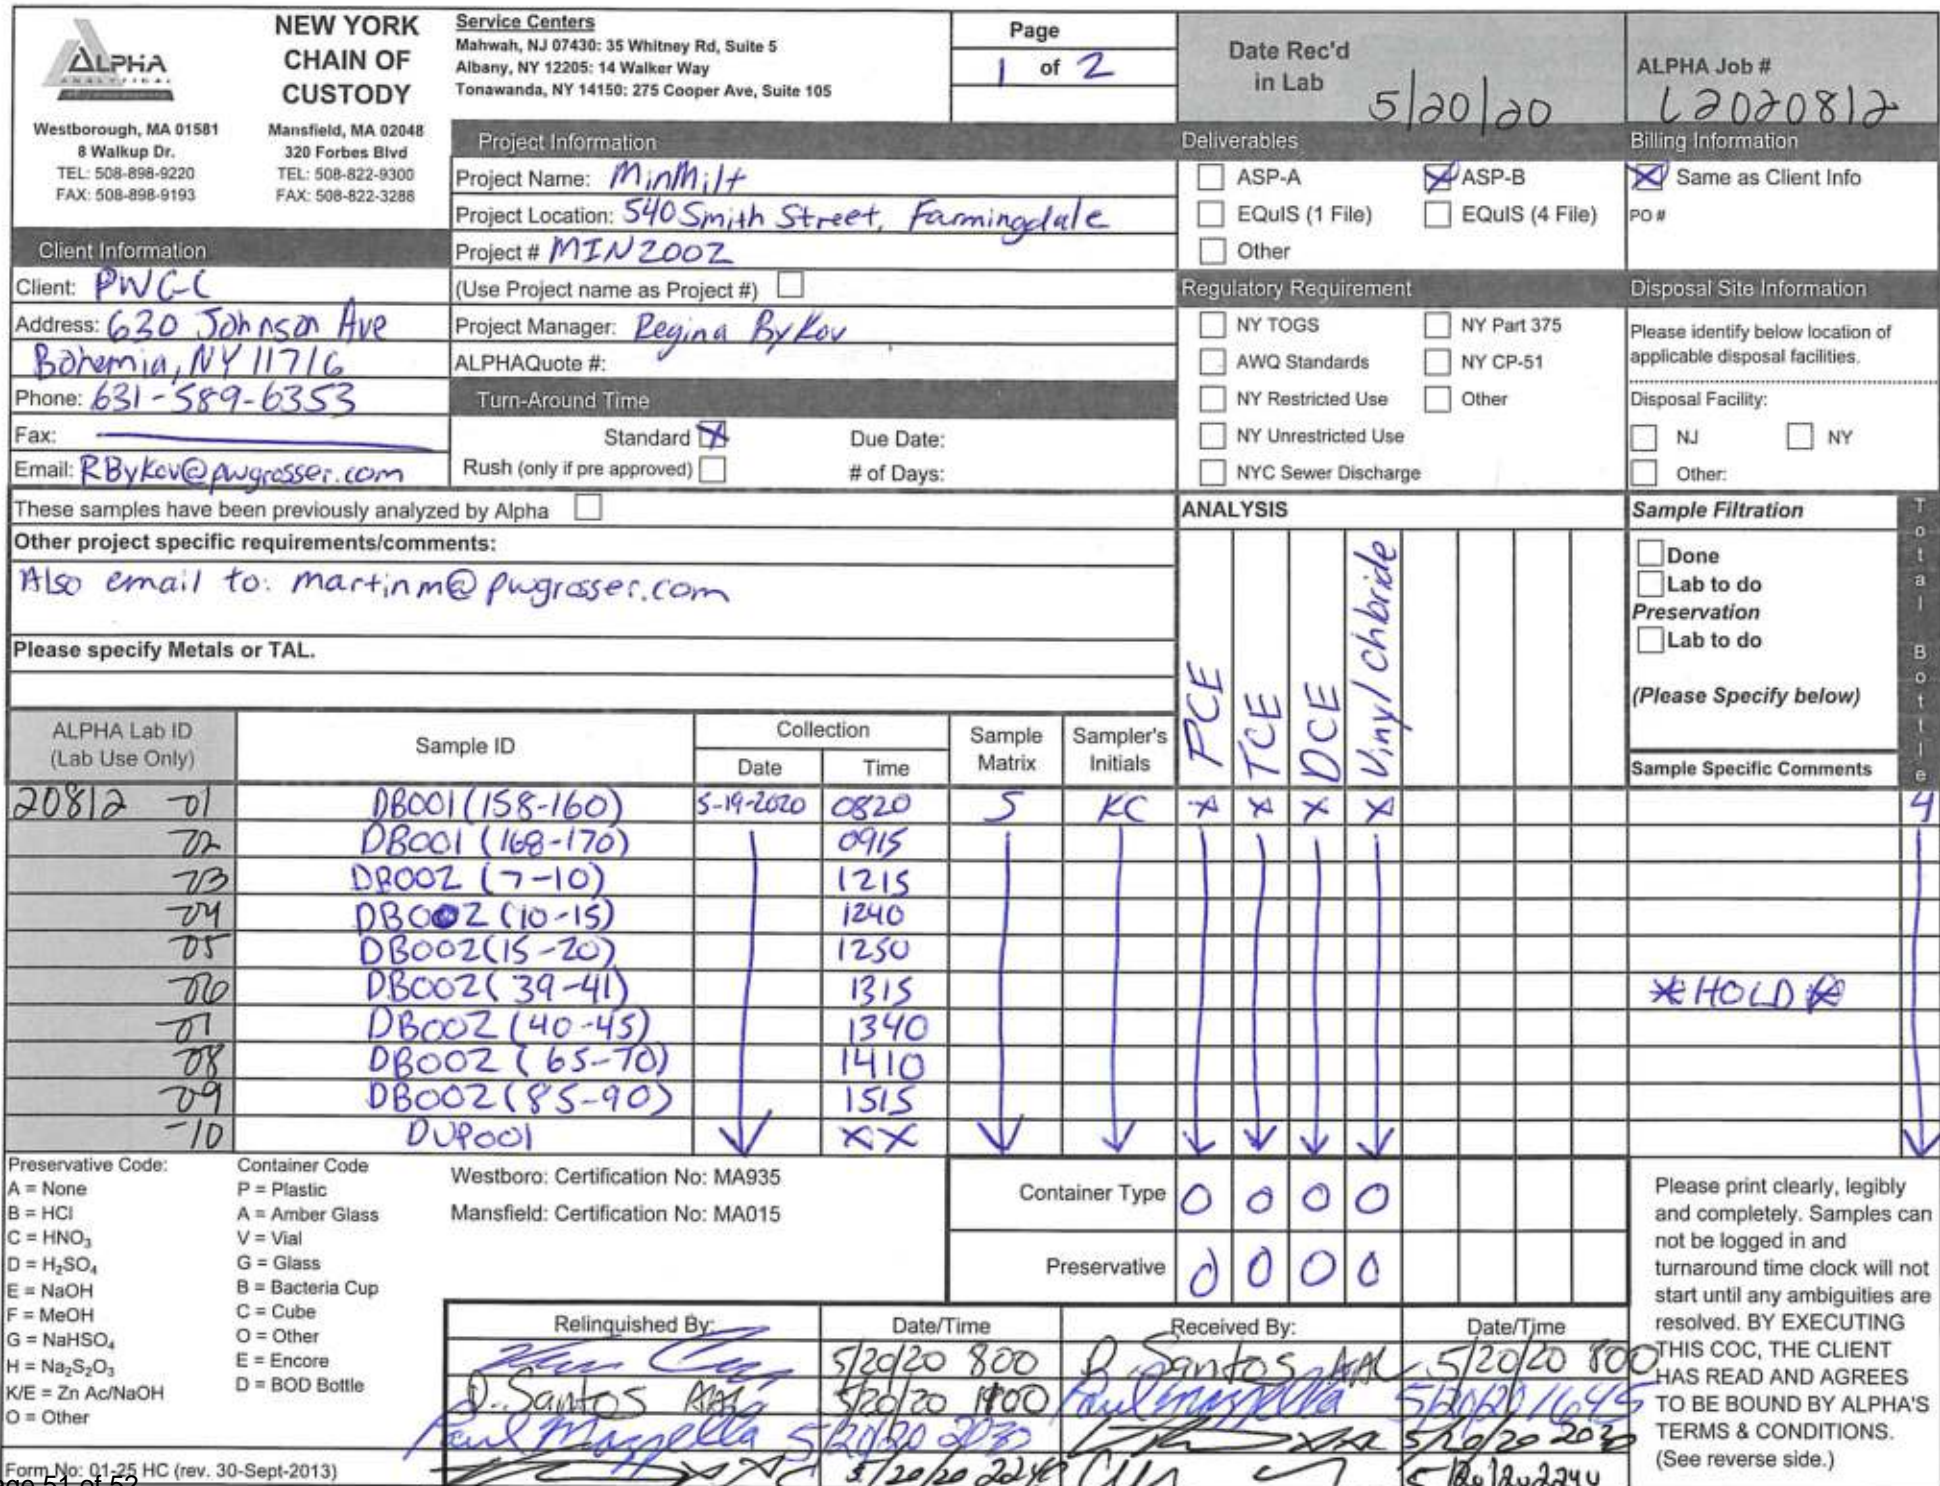 ALPHA
ANALYTICAL
Westborough, MA 01581
8 Walkup Dr.
TEL: 508-898-9220
FAX: 508-898-9193
NEW YORK
CHAIN OF
CUSTODY
Mansfield, MA 02048
320 Forbes Blvd
TEL: 508-822-9300
FAX: 508-822-3288
Service Centers
Mahwah, NJ 07430: 35 Whitney Rd, Suite 5
Albany, NY 12205: 14 Walker Way
Tonawanda, NY 14150: 275 Cooper Ave, Suite 105
Page
1 of 2
Date Rec'd
in Lab 5/20/20
ALPHA Job #
L2020812
Client Information
Client: PWGC
Address: 630 Johnson Ave
Bohemia, NY 11716
Phone: 631-589-6353
Fax:
Email: RBykov@pwgrosser.com
Project Information
Project Name: MinMilt
Project Location: 540 Smith Street, Farmingdale
Project # MIN2002
(Use Project name as Project #)
Project Manager: Regina Bykov
ALPHAQuote #:
Turn-Around Time
Standard X Due Date:
Rush (only if pre approved) # of Days:
Deliverables
ASP-A X ASP-B
EQuIS (1 File) EQuIS (4 File)
Other
Regulatory Requirement
NY TOGS NY Part 375
AWQ Standards NY CP-51
NY Restricted Use Other
NY Unrestricted Use
NYC Sewer Discharge
Billing Information
X Same as Client Info
PO #
Disposal Site Information
Please identify below location of
applicable disposal facilities.
Disposal Facility:
NJ NY
Other:
These samples have been previously analyzed by Alpha
Other project specific requirements/comments:
Also email to: martinm@pwgrosser.com
Please specify Metals or TAL.
ANALYSIS
PCE
TCE
DCE
Vinyl Chloride
Sample Filtration
Done
Lab to do
Preservation
Lab to do
(Please Specify below)
Sample Specific Comments
Total Bottle
ALPHA Lab ID
(Lab Use Only)
Sample ID
Collection
Date Time
Sample
Matrix
Sampler's
Initials
20812 -01 DB001(158-160) 5-19-2020 0820 S KC X X X X 4
-02 DB001 (168-170) 0915
-03 DB002 (7-10) 1215
-04 DB002 (10-15) 1240
-05 DB002(15-20) 1250
-06 DB002(39-41) 1315 *HOLD*
-07 DB002 (40-45) 1340
-08 DB002 (65-70) 1410
-09 DB002(85-90) 1515
-10 DUP001 XX
Preservative Code:
A = None
B = HCl
C = HNO₃
D = H₂SO₄
E = NaOH
F = MeOH
G = NaHSO₄
H = Na₂S₂O₃
K/E = Zn Ac/NaOH
O = Other
Container Code
P = Plastic
A = Amber Glass
V = Vial
G = Glass
B = Bacteria Cup
C = Cube
O = Other
E = Encore
D = BOD Bottle
Westboro: Certification No: MA935
Mansfield: Certification No: MA015
Container Type O O O O
Preservative O O O O
Relinquished By: Date/Time Received By: Date/Time
5/20/20 800 D. Santos AAL 5/20/20 800
D. Santos AAL 5/20/20 Paul Mazzella 5/20/20 1645
Paul Mazzella 5/20/20 2030 5/20/20 2030
5/20/20 2240 5/20/20 2240
Please print clearly, legibly
and completely. Samples can
not be logged in and
turnaround time clock will not
start until any ambiguities are
resolved. BY EXECUTING
THIS COC, THE CLIENT
HAS READ AND AGREES
TO BE BOUND BY ALPHA'S
TERMS & CONDITIONS.
(See reverse side.)
Form No: 01-25 HC (rev. 30-Sept-2013)
51 of 52